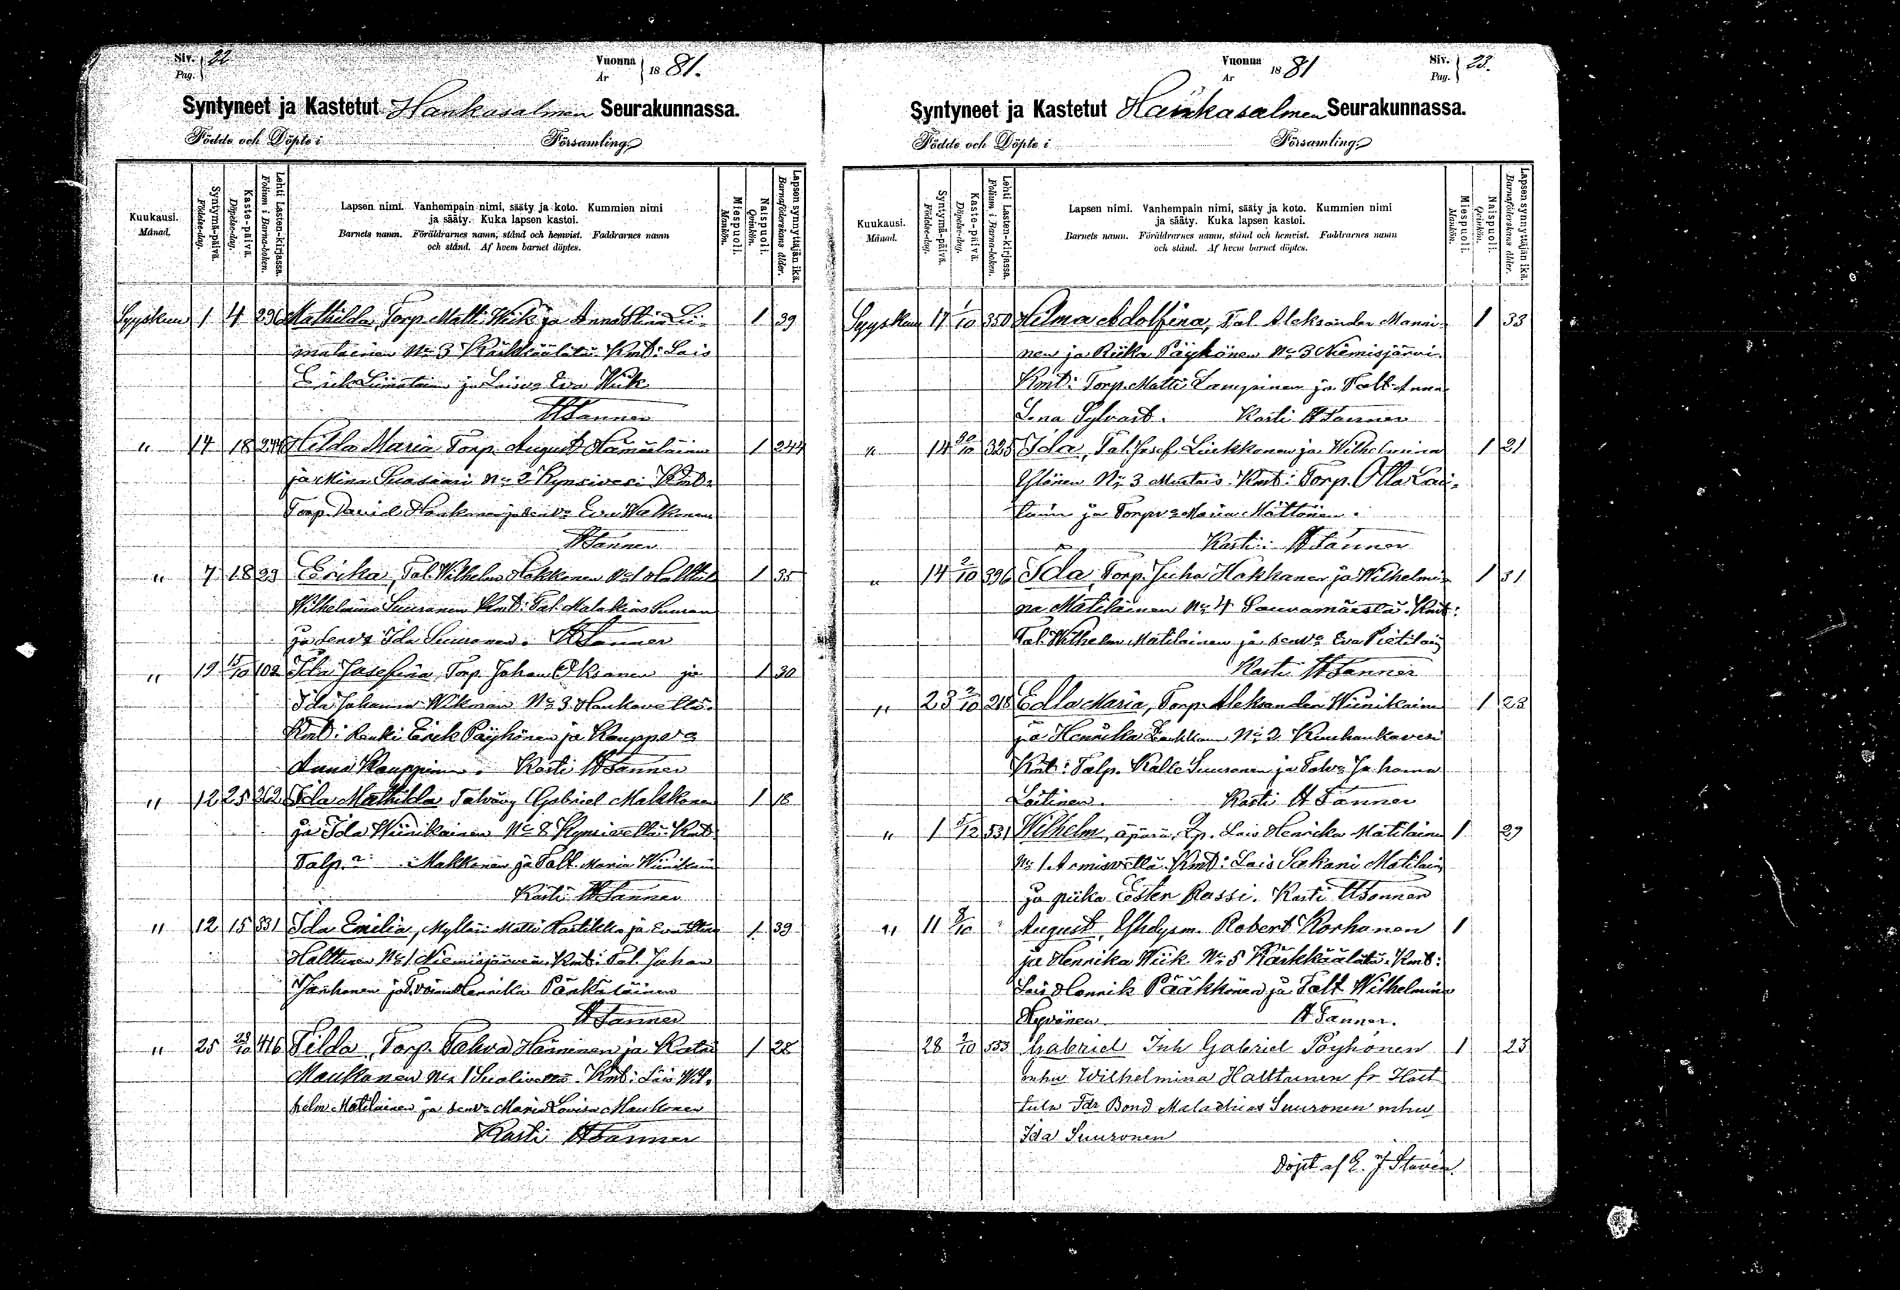 Siv. 22
Pag.
Vuonna 1881.
År
Syntyneet ja Kastetut Hankasalmen Seurakunnassa.
Födde och Döpte i Församling
Kuukausi.
Månad.
Syntymä-päivä.
Födelse-dag.
Kaste-päivä.
Döpelse-dag.
Lehti Lasten-kirjassa.
Folium i Barna-boken.
Lapsen nimi. Vanhempain nimi, sääty ja koto. Kummien nimi
ja sääty. Kuka lapsen kastoi.
Barnets namn. Föräldrarnes namn, stånd och hemvist. Faddrarnes namn
och stånd. Af hvem barnet döptes.
Miespuoli.
Mankön.
Naispuoli.
Qvinkön.
Lapsen synnyttäjän ikä.
Barnaföderskans ålder.
Syyskuu 1 4 296 Mathilda, Torp. Matti Wiik ja Anna Stina Lii- 1 39
matainen No 3 Kärkkäälätä. Kmt: Lois
Erik Liimatain ja Loisv. Eva Wiik
HTanner
" 14 18 244 Hilda Maria Torp. August Hämäläinen 1 244
ja Mina Suasaari No 2 Kynsivesi Kmt:
Torp. David Honkonen ja Eva Walkonen
HTanner
" 7 18 99 Erika, Tal. Wilhelm Hokkanen No 1 Halttul 1 35
Wilhelmina Suuronen Kmt: Tal. Malakias Suuron
ja senv. Ida Suuronen. HTanner
" 19 15/10 102 Ida Josefina Torp. Johan Oksanen ja 1 30
Ida Johanna No 3 Hankavellä.
Kmt: Renki Erik Päyhönen ja Kauppvs
Anna Kauppinen. Kasti HTanner
" 12 25 262 Ida Mathilda Talvävy Gabriel Makkonen 1 18
ja Ida Wiinikainen No 8 Kynsivellä Kmt
Talp. Makkonen ja Talt. Maria Wiinikain
Kasti HTanner
" 12 15 331 Ida Emilia, Mylläri Matti Hartikka ja Eva Stina 1 39
Halttunen No 1 Niemisjärven. Kmt: Tal. Johan
Janhonen ja Henrika Pärkäläinen
HTanner
" 25 23/10 416 Tilda, Torp. Tahvo Hänninen ja Kata 1 28
Maukonen No 1 Kmt: Lois Wil-
helm Matilainen ja senv. Maria Lovisa Maukonen
Kasti HTanner
Vuonna 1881
År
Siv. 23.
Pag.
Syntyneet ja Kastetut Hankasalmen Seurakunnassa.
Födde och Döpte i Församling
Kuukausi.
Månad.
Syntymä-päivä.
Födelse-dag.
Kaste-päivä.
Döpelse-dag.
Lehti Lasten-kirjassa.
Folium i Barna-boken.
Lapsen nimi. Vanhempain nimi, sääty ja koto. Kummien nimi
ja sääty. Kuka lapsen kastoi.
Barnets namn. Föräldrarnes namn, stånd och hemvist. Faddrarnes namn
och stånd. Af hvem barnet döptes.
Miespuoli.
Mankön.
Naispuoli.
Qvinkön.
Lapsen synnyttäjän ikä.
Barnaföderskans ålder.
Syyskuu 17 1/10 350 Hilma Adolfina, Tal. Aleksander Manni- 1 33
nen ja Riika Päyhönen No 3 Niemisjärvi.
Kmt: Torp. Matti Lampinen ja Talt. Anna
Lena Sylvast. Kasti HTanner
" 14 30/10 325 Ida, Tal. Josef Liukkonen ja Wilhelmina 1 21
Ylönen No 3 Kmt: Torp. Otto Lai-
tinen ja Torpv. Maria Möttönen.
Kasti: HTanner
" 14 2/10 396 Ida, Torp. Juha Hokkanen ja Wilhelmi- 1 31
na Matilainen No 4 Sauvamäestä. Kmt:
Tal. Wilhelm Matilainen ja senv. Eva Pietiläin
Kasti HTanner
" 23 2/10 218 Edla Maria, Torp. Aleksander Wiinikainen 1 23
ja Henrika No 2 Kuuhankavesi
Kmt: Talp. Kalle Suuronen ja Talv. Johanna
Laitinen. Kasti HTanner
" 1 5/12 531 Wilhelm, äpärä, Lp. Lois Henrika Matilainen 1 29
No 1 Armisvellä. Kmt: Lois Sakani Matilain
ja piika Ester Rassi. Kasti HTanner
" 11 8/10 " August, Yhdysm. Robert Korhonen 1
ja Henrika Wiik No 5 Kärkkäälätä. Kmt:
Lois Henrik Pääkkönen ja Talt Wilhelmina
Hyvönen. HTanner.
28 2/10 533 Gabriel Inh Gabriel Pöyhönen 1 23
mhu Wilhelmina Halttunen fr. Halt
tula Fdr Bond Malachias Suuronen mhu
Ida Suuronen
Döpt af E. J Stavén.